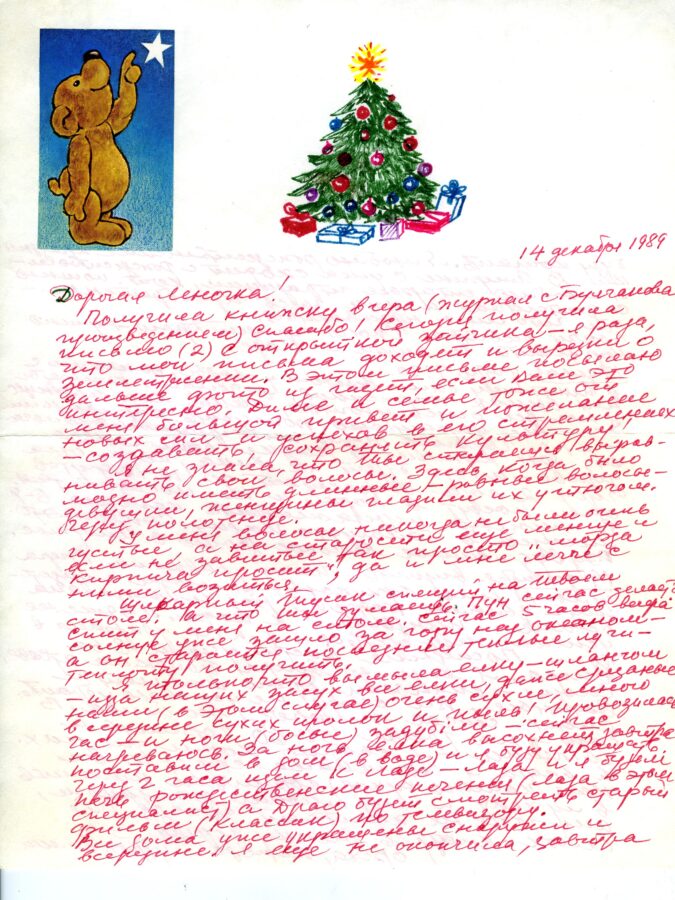 14 декабря 1989
Дорогая Леночка!
Получила книжку вчера (журнал с Булгакова
произведением) Спасибо! Сегодня получила
письмо (2) с открыткой зайчика – я рада,
что мои письма доходят и вырезки о
землетрясении. В этом письме посылаю
дальше фото из газет, если Вам это
интересно. Диме и семье тоже от
меня большой привет и пожелание
новых сил и успехов в его стремлениях
– создавать, сохранить культуру.
Я не знала, что Ты стараешься выров-
нивать свои волосы. Здесь когда было
модно иметь длинные – ровные волосы –
девушки, женщины гладили их утюгом.
через полотенце.
У меня волосы никогда не были очень
густые, а на старости еще меньше и
если не завитые так просто "морда
кирпича просит", да и мне легче с
ними возиться.
Шикарный Тусик спящий на Твоем
столе. А что Ты думаешь. Пун сейчас
спит у меня на столе. Сейчас 5 часов вечера
солнце уже зашло за гору над океаном –
а он старается последние теплые лучи –
теплоту получить.
Я только что вымыла елку – шлангом
– из-за наших засух все елки, даже срезанные
наши (в этом случае) очень сухие, много
в середине сухих иголок и пыли! Провозилась
час – и ноги (босые) задубели – сейчас
нагреваюсь. За ночь елка высохнет, завтра
поставим в дом (в воде) и я буду украшать
через 2 часа идем к Ладе – Лада и я будем
печь рождественские печения (Лада в этом
специалист) а Драго будет смотреть старый
фильм (классик) по телевизору.
Все дома уже украшены снаружи и
в середине. Я еще не окончила, завтра